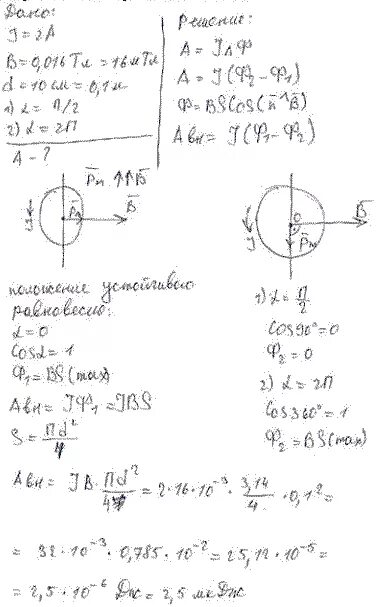 Дано:
J = 2A
B = 0,016 Тл = 16 мТл
d = 10 см = 0,1 м
1) α = П/2
2) α = 2П
A - ?
Решение:
A = JΔФ
A = J(Ф₂ - Ф₁)
Ф = BS cos(n̄^B̄)
Aвн = J(Ф₁ - Ф₂)
P̄m ↑↑ B̄
J P̄m B̄
J O P̄m B̄
положение устойчивого
равновесия:
α = 0
cosα = 1
Ф₁ = BS(max)
Aвн = JФ₁ = JBS
S = Пd²/4
1) α = П/2
cos90° = 0
Ф₂ = 0
2) α = 2П
cos360° = 1
Ф₂ = BS(max)
Aвн = JB · Пd²/4 = 2·16·10⁻³ · 3,14/4 · 0,1² =
= 32·10⁻³ · 0,785·10⁻² = 25,12·10⁻⁵ =
= 2,5·10⁻⁶ Дж = 2,5 мкДж